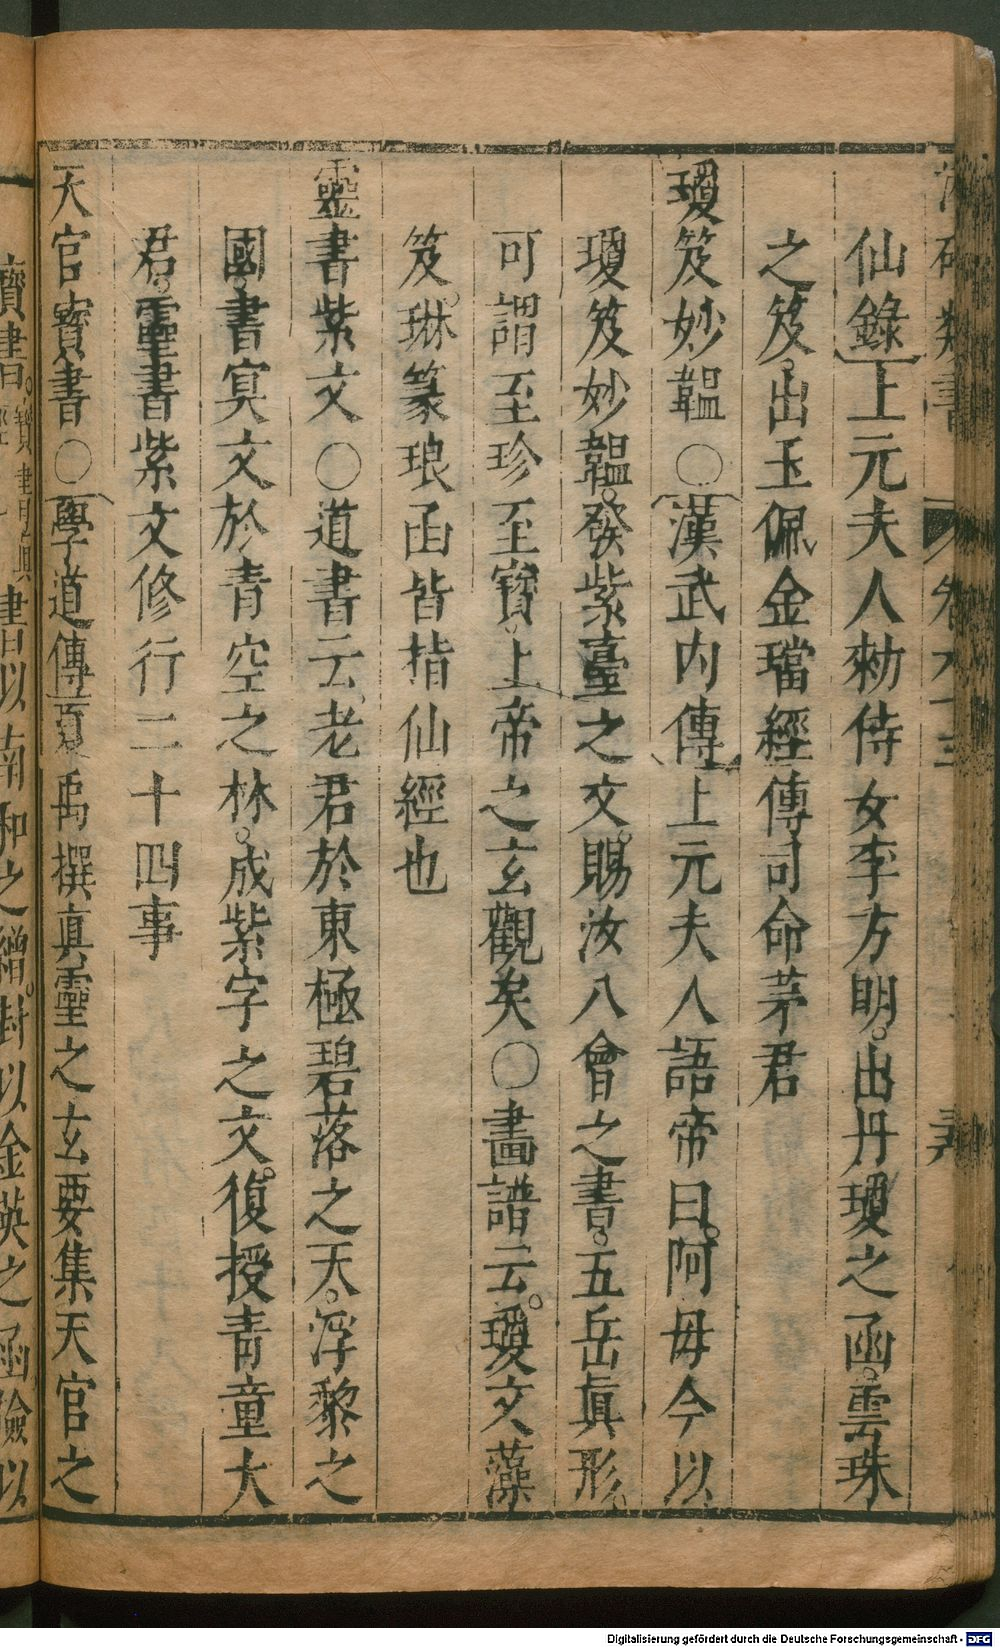 仙錄上元夫人勑侍女李方明。出丹瓊之函。雲珠
之笈。出玉佩金璫經傳司命茅君
瓊笈妙韞〇漢武内傳上元夫人語帝曰。阿母今以
瓊笈妙韞。發紫臺之文。賜汝八會之書。五岳眞形。
可謂至珍至寶。上帝之玄觀矣〇畵譜云。瓊文藻
笈。琳篆琅函皆指仙經也
靈書紫文〇道書云。老君於東極碧落之天。浮黎之
國。書寘文於青空之林。成紫字之文。復授青童大
君。靈書紫文修行二十四事
天官寳書〇學道傳夏禹撰真靈之玄要集天官之
寳書。以南和之繒。封以金英之函檢以
Digitalisierung gefördert durch die Deutsche Forschungsgemeinschaft - DFG